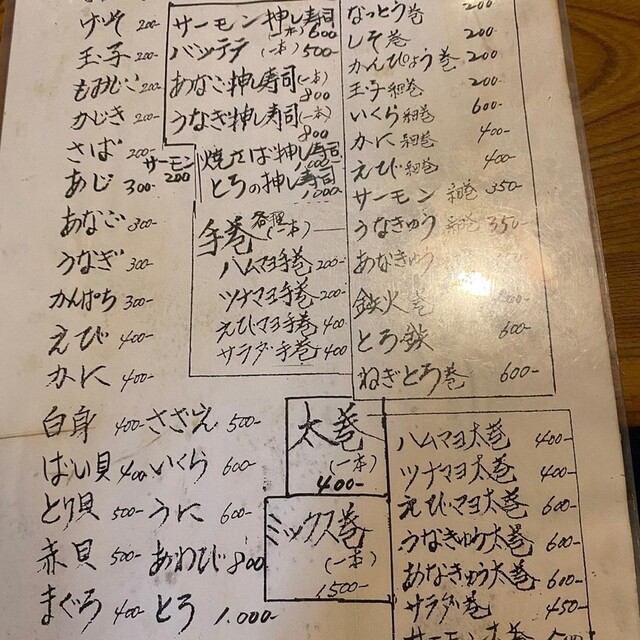 げそ 200-
玉子 200-
もみじこ 200-
かじき 200-
さば 200-
サーモン 200
あじ 300-
あなご 300-
うなぎ 300-
かんぱち 300-
えび 400-
かに 400-
白身 400-
ばい貝 400
とり貝 500-
赤貝 500-
まぐろ 400-
さざえ 500-
いくら 600-
うに 600-
あわび 800
とろ 1.000-
サーモン押し寿司(一本) 600
バッテラ(一本) 500-
あなご押し寿司(一本) 800
うなぎ押し寿司(一本) 800
焼さば押し寿司
とろの押し寿司 1.000-
手巻 各種(一本)
ハムマヨ手巻 200-
ツナマヨ手巻 200-
えびマヨ手巻 400
サラダ手巻 400
なっとう巻 200
しそ巻 200-
かんぴょう巻 200-
玉子細巻 200-
いくら細巻 600-
かに細巻 400-
えび細巻 400-
サーモン細巻 350-
うなきゅう細巻 350-
あなきゅう
鉄火巻
とろ鉄 600-
ねぎとろ巻 600-
太巻(一本) 400-
ミックス巻(一本) 1500-
ハムマヨ太巻 400-
ツナマヨ太巻 400-
えびマヨ太巻 600-
うなきゅう太巻 600-
あなきゅう太巻 600-
サラダ巻 450-
サーモン太巻